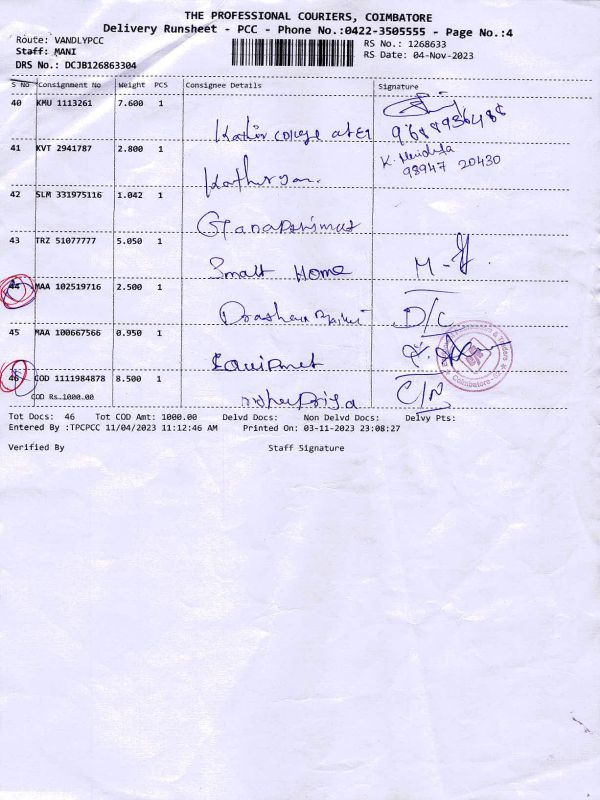 THE PROFESSIONAL COURIERS, COIMBATORE
Delivery Runsheet - PCC - Phone No.:0422-3505555 - Page No.:4
Route: VANDLYPCC
RS No.: 1268633
Staff: MANI
RS Date: 04-Nov-2023
DRS No.: DCJB126863304
S No Consignment No Weight PCS Consignee Details Signature
40 KMU 1113261 7.600 1
college 9688936488
41 KVT 2941787 2.800 1
K.
98947 20430
42 SLM 331975116 1.042 1
43 TRZ 51077777 5.050 1
Small Home M-
44 MAA 102519716 2.500 1
D/C
45 MAA 100667566 0.950 1
Coimbatore
46 COD 1111984878 8.500 1
COD Rs.1000.00
C/N
Tot Docs: 46 Tot COD Amt: 1000.00 Delvd Docs: Non Delvd Docs: Delvy Pts:
Entered By :TPCPCC 11/04/2023 11:12:46 AM Printed On: 03-11-2023 23:08:27
Verified By Staff Signature